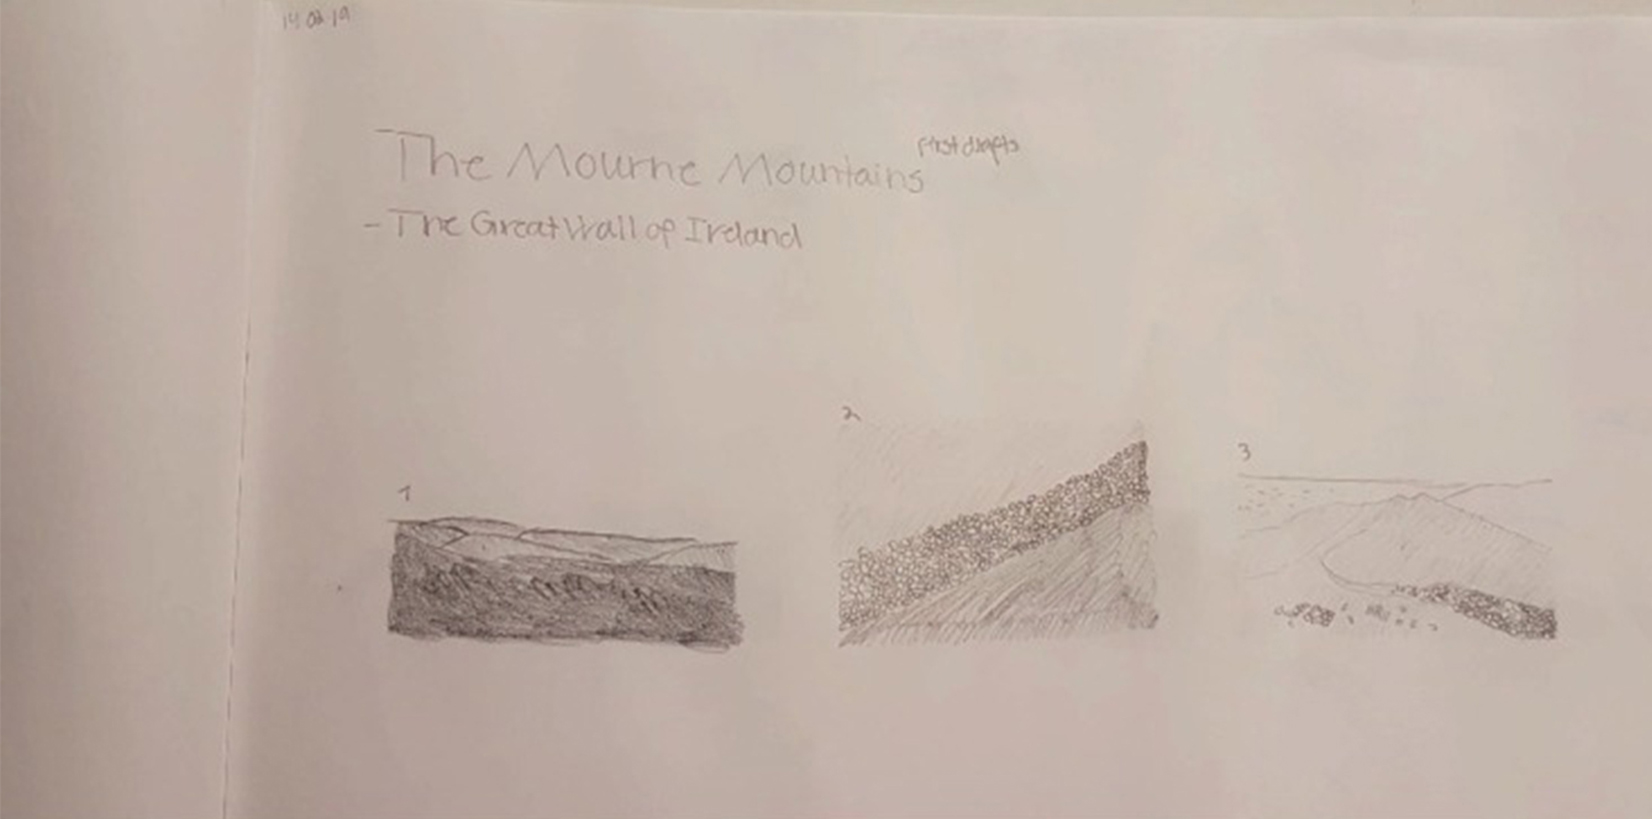 14.02.19
The Mourne Mountains first drafts
- The Great Wall of Ireland
1
2
3